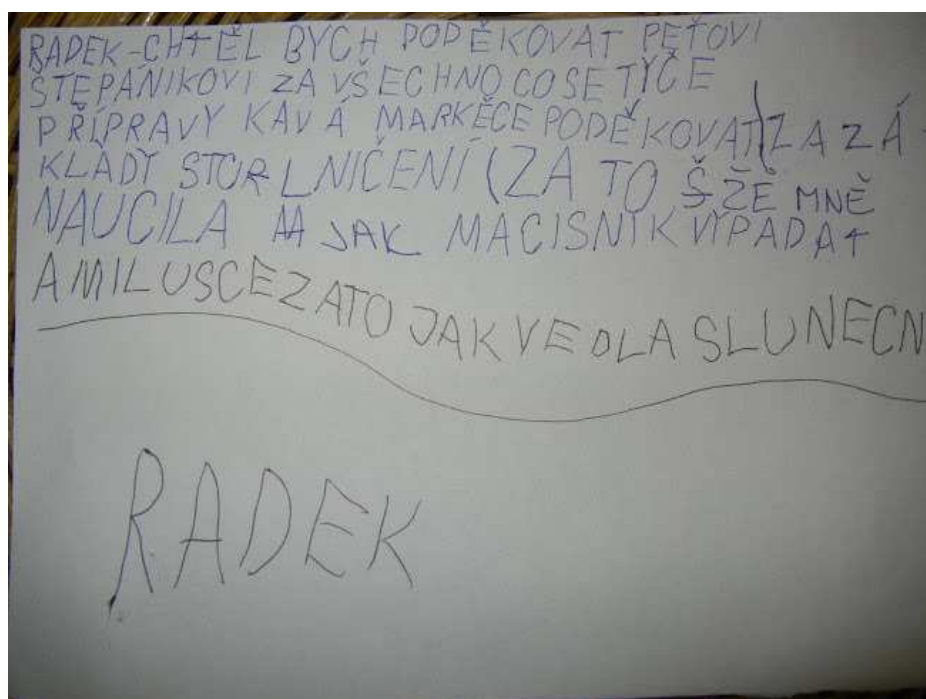 RADEK-CHTĚL BYCH PODĚKOVAT PEŤOVI
ŠTĚPÁNIKOVI ZA VŠECHNO CO SE TÝČE
PŘÍPRAVY KÁV Á MARKĚCE PODĚKOVAT ZA ZÁ-
KLÁDY STOR LNIČENÍ (ZA TO ŽE MNĚ
NAUCILA JAK MA CISNIK VIPADAT
A MILUSCE ZA TO JAK VEDLA SLUNECN
RADEK